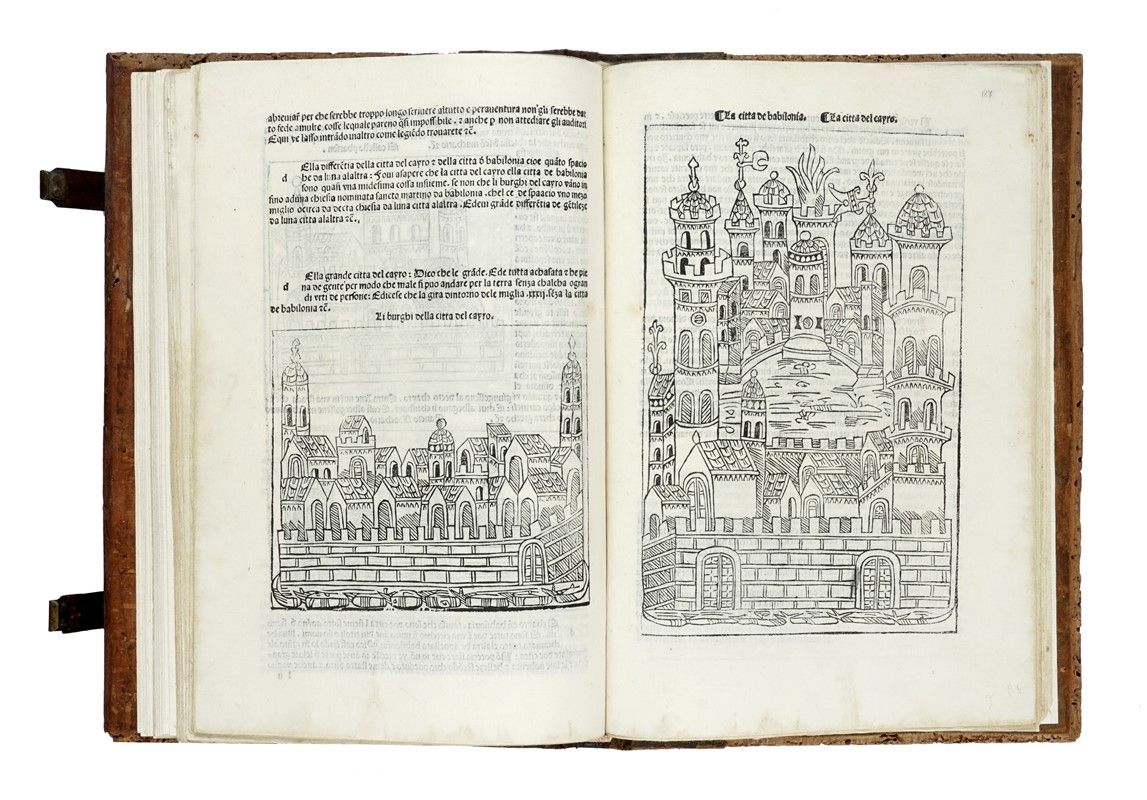 abreviar per che serebbe troppo longo scrivere altutto e peraventura non gli serebbe dar
to fede amulte cosse lequale pareno q̃si impossibile. ⁊ anche p non attediare gli auditori
Equi ve lasso intrãdo inaltro come legiẽdo trouarete ⁊c̃.
Ella differẽtia della citta del cayro ⁊ della citta d babilonia cioe quãto spacio
d he da luna alaltra: Foui asapere che la citta del cayro ella citta de babilonia
sono quasi vna midesima cossa insieme. se non che li burghi del cayro vãno in
fino aduna chiesia nommata sancto martino da babilonia. chel ce de spaacio vno mezo
miglio ocirca da decta chiesia da luna citta alaltra. Edeui grãde differẽtia de gẽtileze
da luna citta alaltra ⁊c̃.
Ella grande citta del cayro: Dico che le grãde. Ede tutta achasata ⁊ he pie
d na de gente per modo che male si puo andare per la terra senza chalcha ogran
di vrti de persone: Edicese che la gira dintorno dele miglia .xxxij. sẽza la citta
de babilonia ⁊c̃.
Li burghi della citta del cayro.
La citta de babilonia. La citta del cayro.